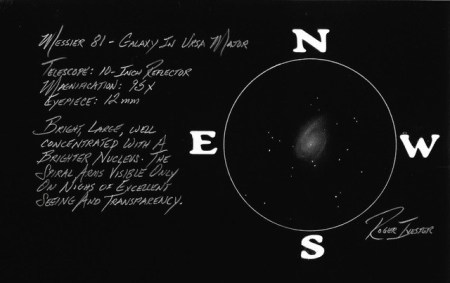 Messier 81 - Galaxy In Ursa Major
Telescope: 10-Inch Reflector
Magnification: 95x
Eyepiece: 12mm
Bright, Large, well
concentrated with A
Brighter Nucleus. The
Spiral Arms Visible Only
On Nights of Excellent
Seeing And Transparency.
N
E
W
S
Roger Ivester